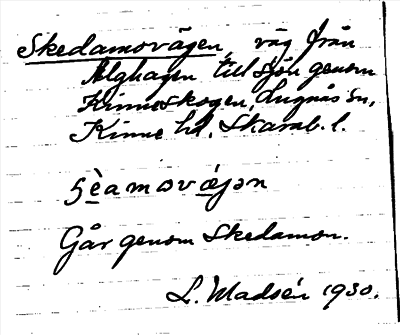 Skedamovägen, väg från
Älghagen till sjön genom
Kinneskogen, Lugnås sn,
Kinne hd. Skarab. l.
Går genom Skedamon.
L. Madsén 1930.